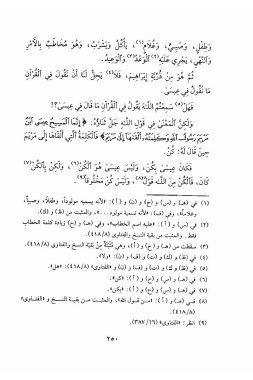 وَطِفْلٍ، وَصَبِيٍّ، وَغُلَامٍ(١)، يَأْكُلُ وَيَشْرَبُ، وَهُوَ مُخَاطَبٌ بِالْأَمْرِ
وَالنَّهْيِ، يَجْرِي عَلَيْهِ(٢) الْوَعْدُ(٣) وَالْوَعِيدُ.
ثُمَّ هُوَ مِنْ ذُرِّيَّةِ إِبْرَاهِيمَ، فَلَا(٤) يَحِلُّ لَنَا أَنْ نَقُولَ فِي الْقُرْآنِ
مَا نَقُولُ فِي عِيسَى.
فَهَلْ(٥) سَمِعْتُمُ اللَّهَ يَقُولُ فِي الْقُرْآنِ مَا قَالَ فِي عِيسَى؟!
وَلَكِنَّ الْمَعْنَى فِي قَوْلِ اللَّهِ جَلَّ ثَنَاؤُهُ: ﴿إِنَّمَا الْمَسِيحُ عِيسَى ابْنُ
مَرْيَمَ رَسُولُ اللَّهِ وَكَلِمَتُهُ أَلْقَاهَا إِلَى مَرْيَمَ﴾ فَالْكَلِمَةُ الَّتِي أَلْقَاهَا إِلَى مَرْيَمَ
حِينَ قَالَ لَهُ: كُنْ.
فَكَانَ عِيسَى بِكُنْ، وَلَيْسَ عِيسَى هُوَ الْكُنْ(٦)، وَلَكِنْ بِالْكُنْ(٧)
كَانَ، فَالْكُنْ مِنَ اللَّهِ قَوْلٌ(٨)، وَلَيْسَ كُنْ مَخْلُوقًا(٩).
(١) في (هـ) و (س) و (ح) و (ن) و (أ): «لأنه يسميه مولوداً، وطفلاً، وصبياً،
وغلاماً»، وفي (ف): «لأنه تسميه مولود...»، والمثبت من (ظ) و (ك).
(٢) في (ف) و (أ): «عليه اسم الخطاب»، وفي (هـ) و (ح) زيادة كلمة الخطاب
فقط. والمثبت من بقية النسخ والفتاوى (٤١٨/٨).
(٣) سقطت من (هـ) و (ح) و (أ)، وهي مثبتة من بقية النسخ والفتاوى (٤١٨/٨).
(٤) في (ظ) و (ك) و (ت) و (ف) و (ن): «ولا».
(٥) في (ظ) و (ك) و (ت) و (ف) و (ن) و «الفتاوى» (٤١٨/٨): «هل».
(٦) في (هـ) و (س) و (ح) و (أ): «كن».
(٧) في (هـ) و (س) و (ح) و (أ): «بكن».
(٨) في (هـ) و (أ): «من قول الله»، والمثبت من بقية النسخ و «الفتاوى»
(٤١٨/٨).
(٩) انظر: «الفتاوى» (٣٨٧/١٦).
٢٥٠